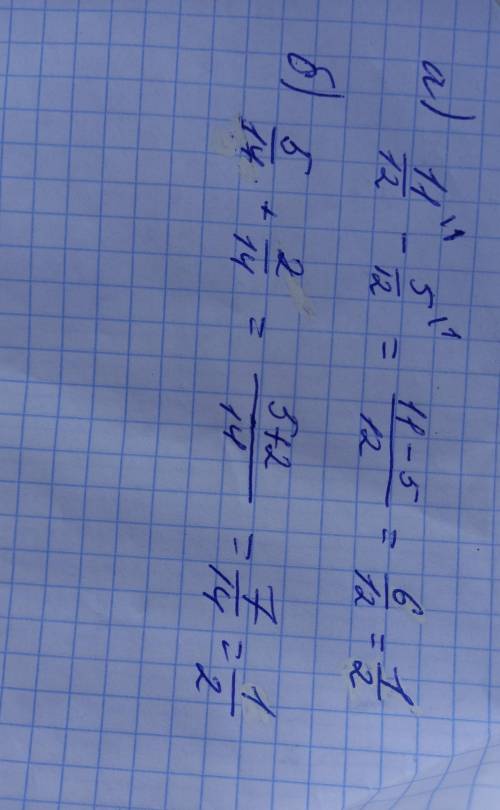 а) 11/12 \1 - 5/12 \1 = 11-5/12 = 6/12 = 1/2
б) 5/14 + 2/14 = 5+2/14 = 7/14 = 1/2